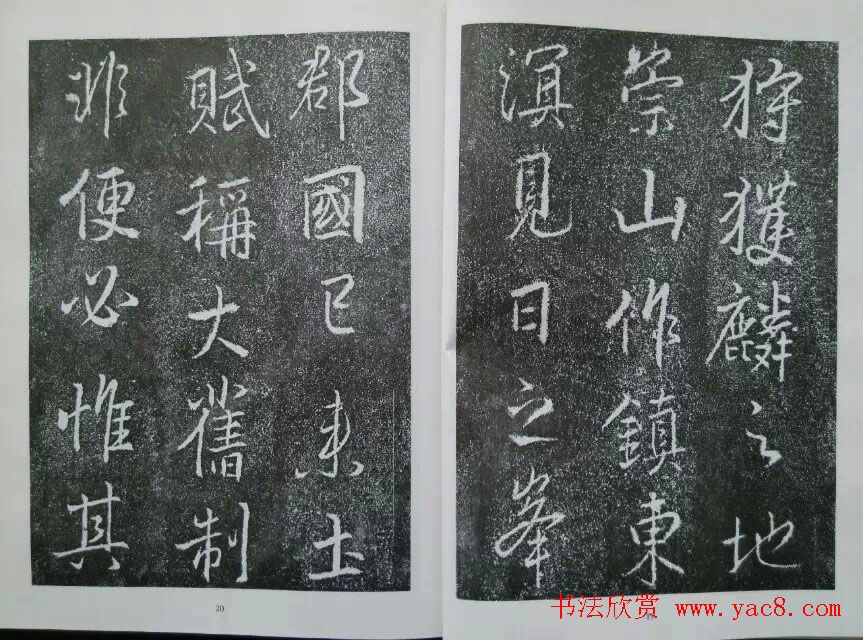 狩獲麟之地
崇山作鎮東
溟見日之峯
郡國已來土
賦稱大舊制
非便必惟其
20
书法欣赏 www.yac8.com